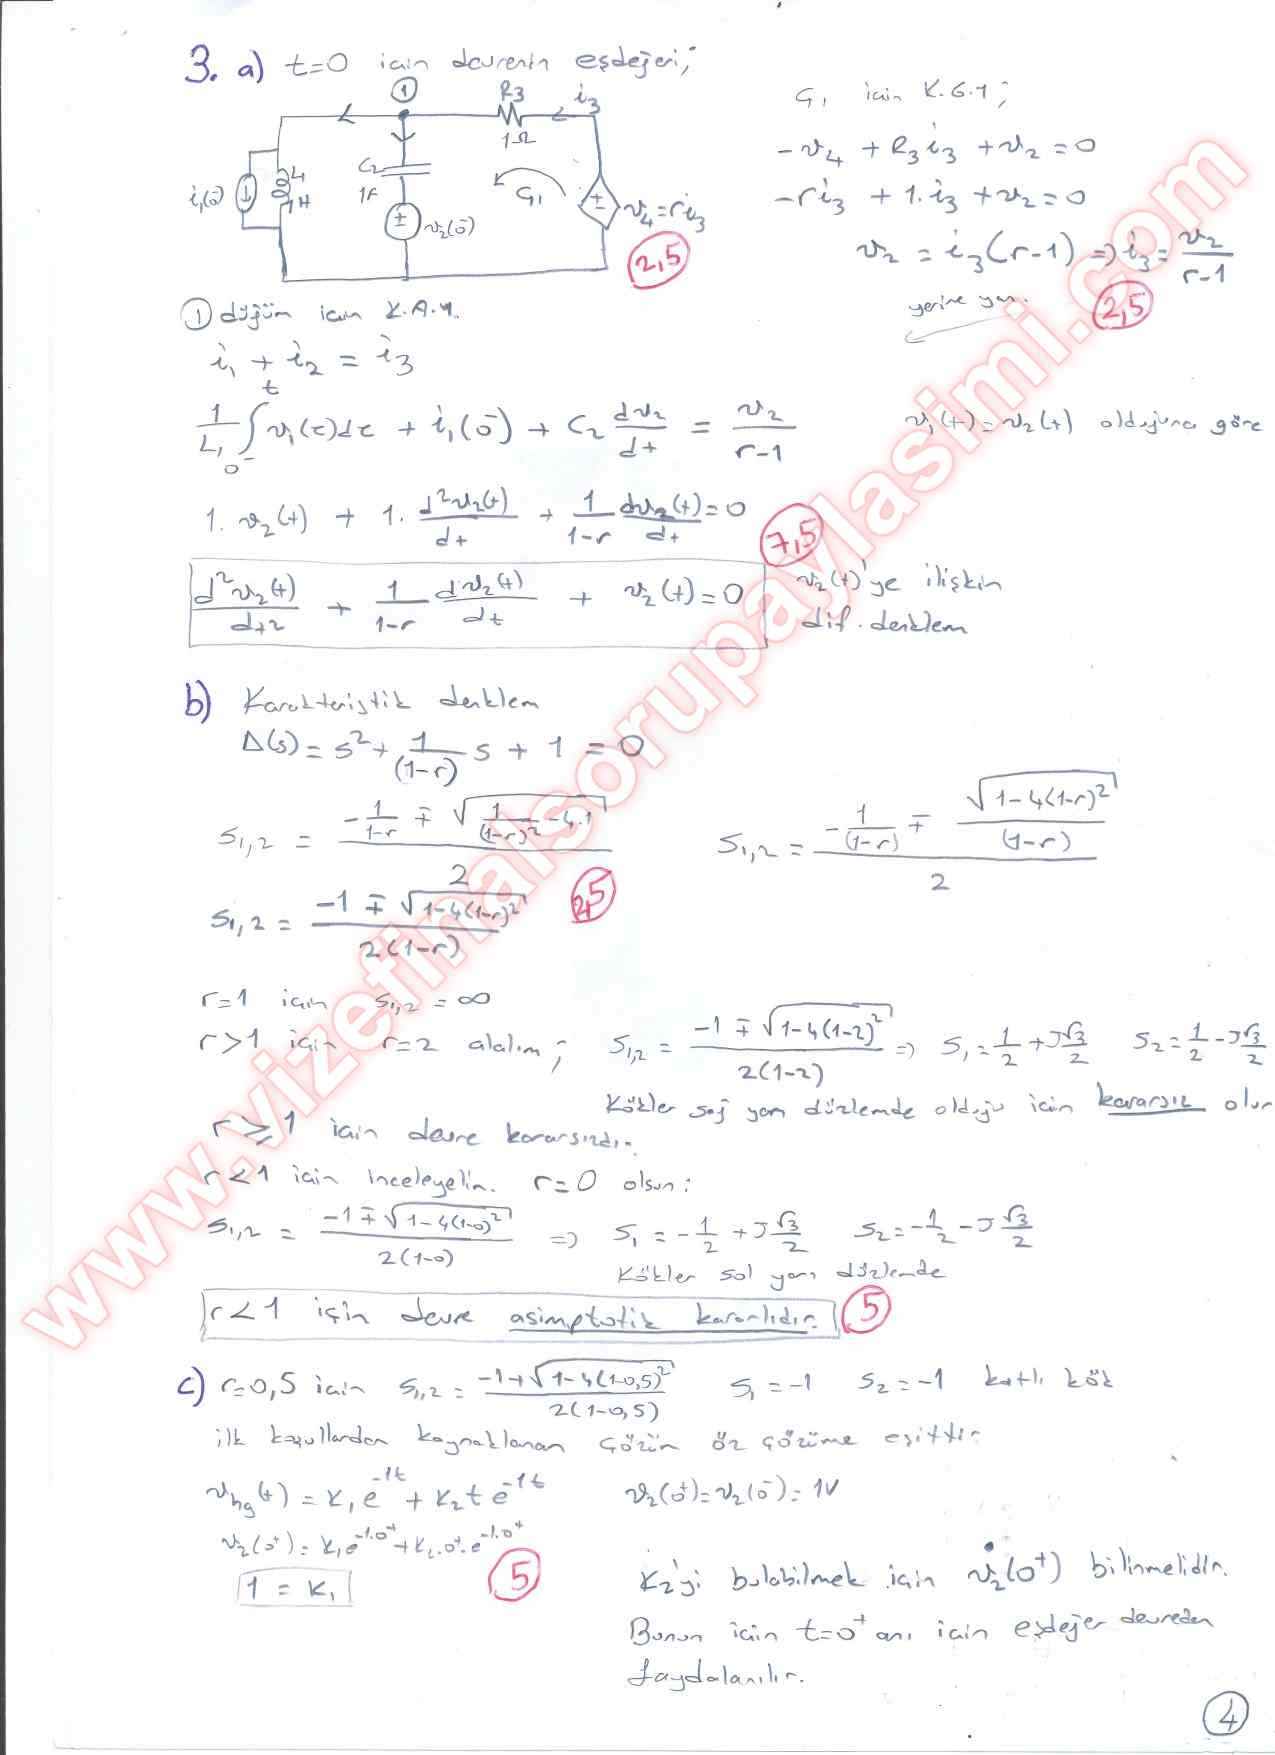 3. a) t=0 icin devrenin eşdeğeri;
1
R3
1Ω
i3
C2
1F
v2(0⁻)
i1(0⁻)
L1
1H
G1
v4=ri3
2,5
G1 icin K.G.Y;
-v4 + R3i3 + v2 = 0
-ri3 + 1.i3 + v2 = 0
v2 = i3(r-1) => i3 = v2/(r-1)
yerine yaz.
2,5
1 düğüm icin K.A.Y.
i1 + i2 = i3
1/L1 ∫0⁻^t v1(τ)dτ + i1(0⁻) + C2 dv2/dt = v2/(r-1)
v1(t) = v2(t) olduğuna göre
1. v2(t) + 1. d²v2(t)/dt + 1/(1-r) dv2(t)/dt = 0
7,5
d²v2(t)/dt² + 1/(1-r) dv2(t)/dt + v2(t) = 0
v2(t)'ye ilişkin
dif. denklem
b) Karakteristik denklem
Δ(s) = s² + 1/(1-r) s + 1 = 0
s1,2 = (-1/(1-r) ∓ √(1/(1-r)² - 4.1))/2
s1,2 = (-1/(1-r) ∓ √(1-4(1-r)²)/(1-r))/2
s1,2 = (-1 ∓ √(1-4(1-r)²))/(2(1-r))
2,5
r=1 icin s1,2 = ∞
r>1 için r=2 alalım; s1,2 = (-1 ∓ √(1-4(1-2)²))/(2(1-2)) => s1 = 1/2 + J√3/2 s2 = 1/2 - J√3/2
Kökler sağ yarı düzlemde olduğu için kararsız olur
r ≥ 1 icin devre kararsızdır.
r<1 icin inceleyelim. r=0 olsun:
s1,2 = (-1 ∓ √(1-4(1-0)²))/(2(1-0)) => s1 = -1/2 + J√3/2 s2 = -1/2 - J√3/2
Kökler sol yarı düzlemde
r<1 için devre asimptotik kararlıdır.
5
c) r=0,5 icin s1,2 = (-1+√(1-4(1-0,5)²))/(2(1-0,5)) s1 = -1 s2 = -1 katlı kök
ilk koşullardan kaynaklanan çözüm öz çözüme eşittir.
vhg(t) = K1e^(-1t) + K2te^(-1t) v2(0⁺) = v2(0⁻) = 1V
v2(0⁺) = K1e^(-1.0⁺) + K2.0⁺.e^(-1.0⁺)
1 = K1
5
K2'yi bulabilmek için v̇2(0⁺) bilinmelidir.
Bunun icin t=0⁺ anı icin eşdeğer devreden
faydalanılır.
4
www.vizefinalsorupaylasimi.com